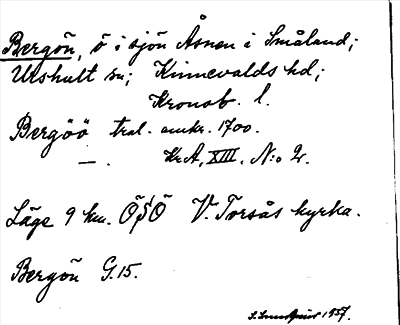 Bergön, ö i sjön Åsnen i Småland;
Urshult sn; Kinnevalds hd;
Kronob. l.
Bergöö tral. omkr. 1700.
—. Kr A, XIII. N:o 2.
Läge 9 km. ÖSÖ V. Torsås kyrka.
Bergön G.15.
1957.